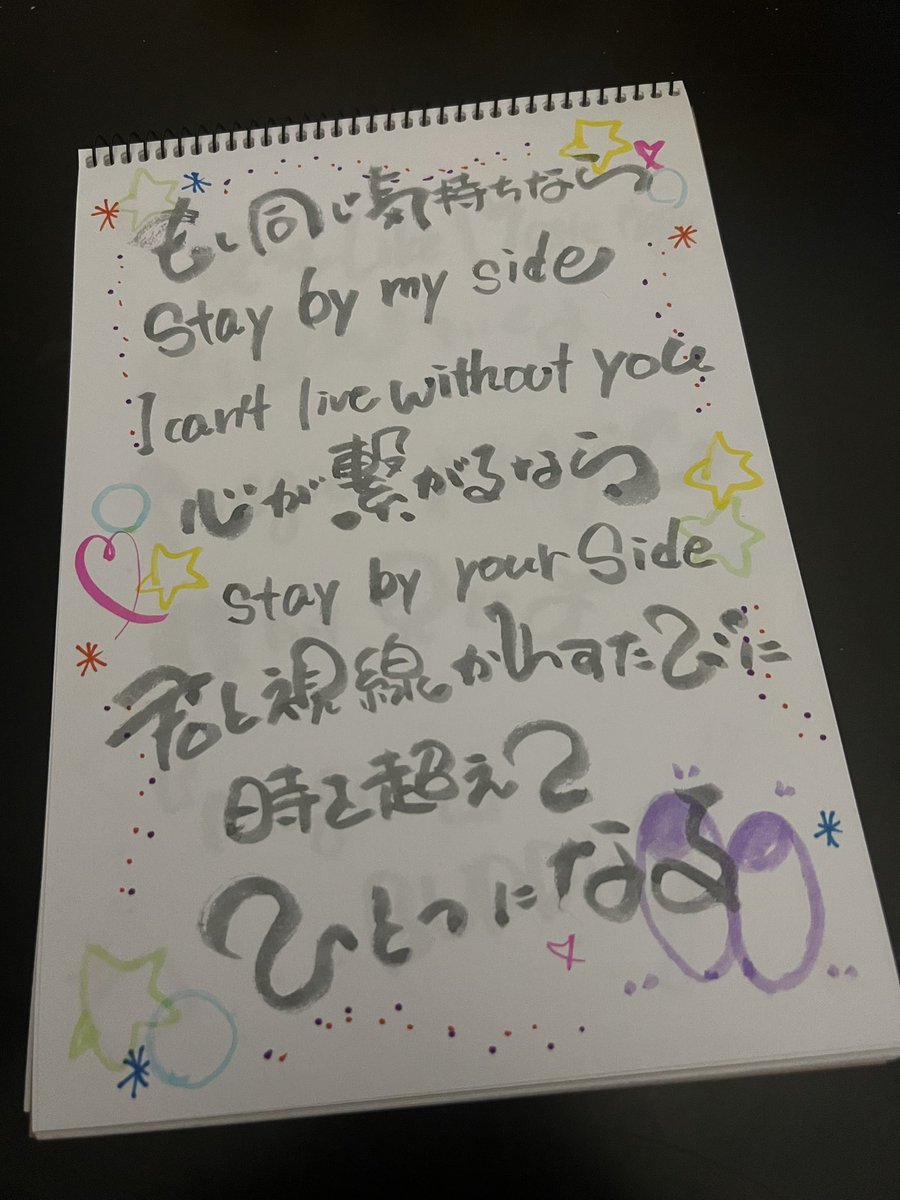 もし同じ気持ちなら
Stay by my side
I can't live without you
心が繋がるなら
stay by your Side
君と視線かわすたびに
時を超えて
ひとつになる